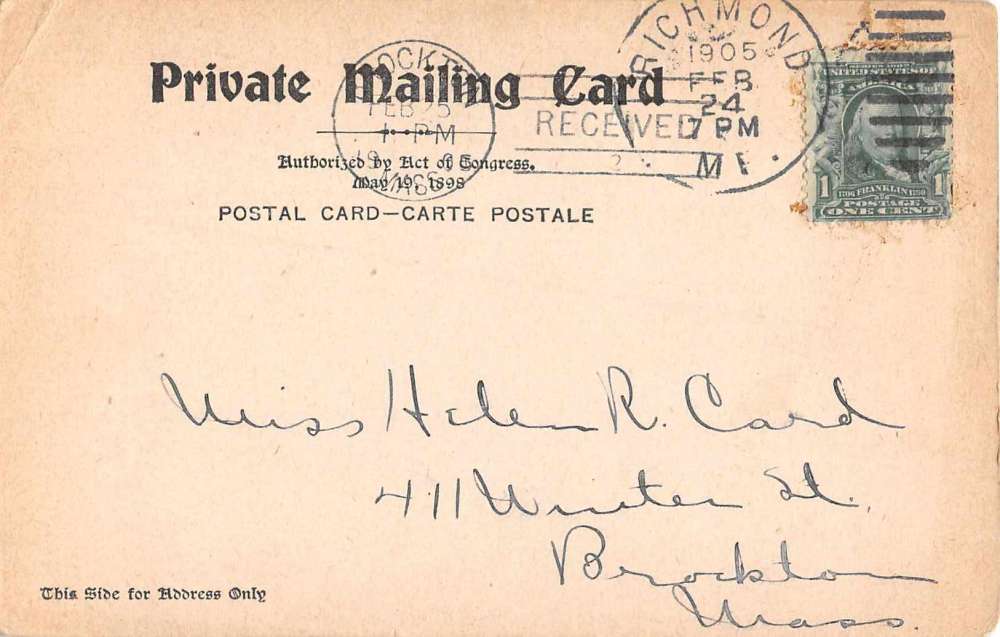 Private Mailing Card
Authorized by Act of Congress.
May 19, 1898
POSTAL CARD—CARTE POSTALE
FEB 25
1 PM
MASS
RICHMOND
1905
FEB
24
7 PM
RECEIVED
UNITED STATES OF
AMERICA
1 1706 FRANKLIN 1790 1
POSTAGE
ONE CENT
Miss Helen R. Card
411 Winter St.
Brockton
Mass.
This Side for Address Only